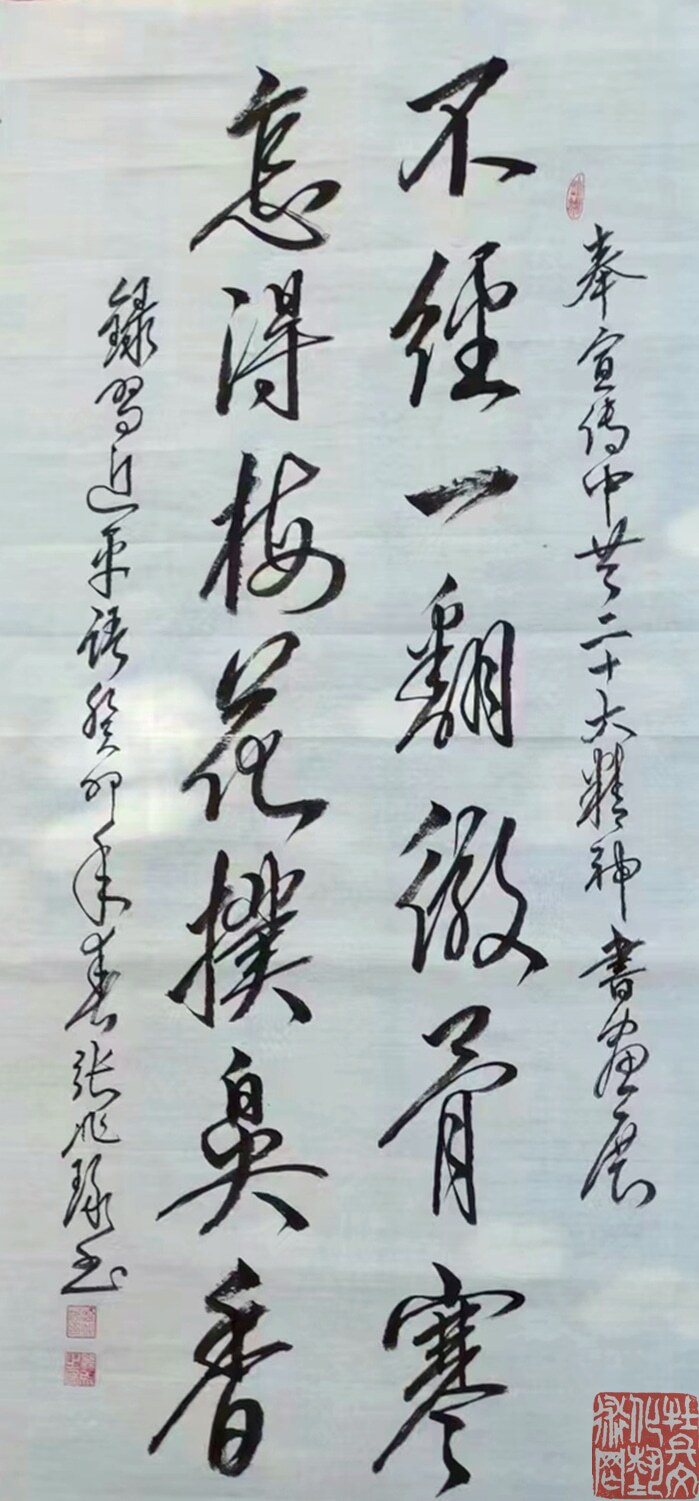 奉宣傳中共二十大精神書畫展
不經一翻徹骨寒
怎得梅花撲鼻香
録習近平語癸卯年春張兆